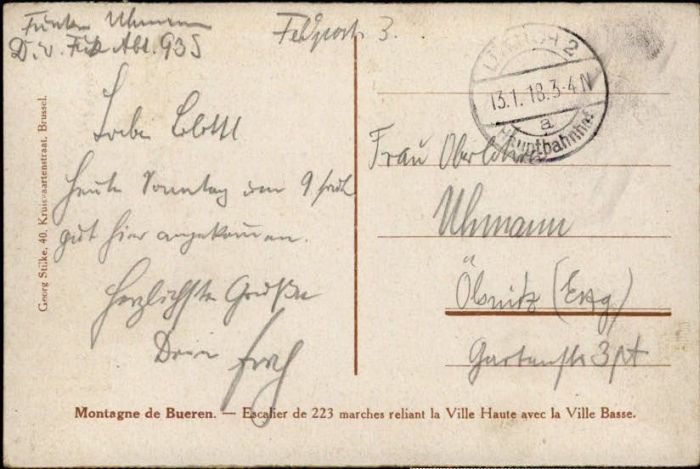 Funker Uhmann
D. v. Fuk Abt. 935
Feldpost 3.
LÜTTICH 2
13.1.18.3-4 N
a
Hauptbahnhof
Georg Stilke, 40, Kruisvaartenstraat, Brussel.
Heute Sonntag um 9 früh
gut hier angekommen.
Herzlichste Grüße
Dein
Frau
Uhmann
Ölsnitz (Erzg)
Gartenstr 3pt
Montagne de Bueren. — Escalier de 223 marches reliant la Ville Haute avec la Ville Basse.